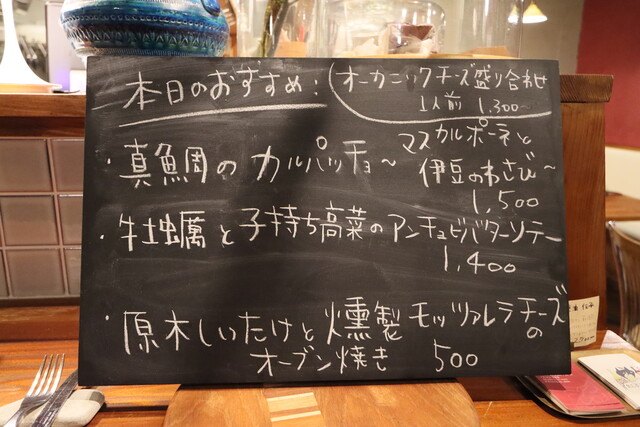 本日のおすすめ:
オーガニックチーズ盛り合わせ
1人前 1,300
・真鯛のカルパッチョ~
マスカルポーネと
伊豆のわさび~
1,500
・牡蠣と子持ち高菜のアンチョビバターソテー
1,400
・原木しいたけと燻製モッツァレラチーズの
オーブン焼き 500